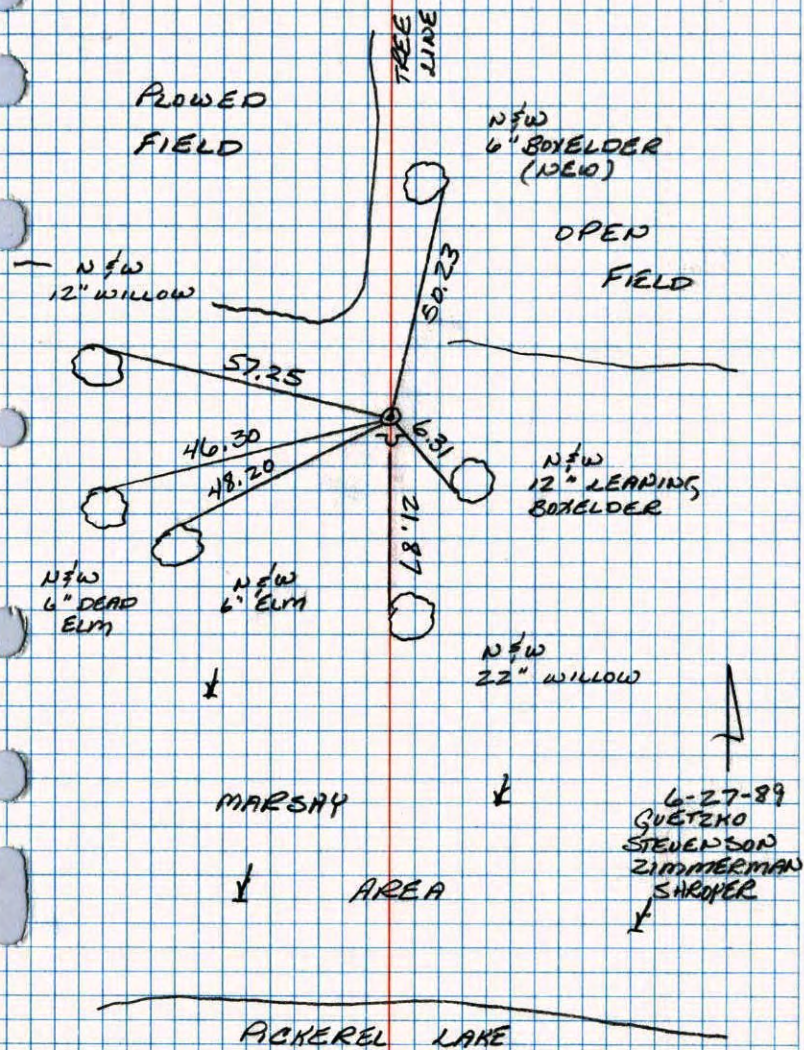 TREE
LINE
PLOWED
FIELD
N & W
6" BOXELDER
(NEW)
OPEN
FIELD
N & W
12" WILLOW
50.23
57.25
46.30
48.20
6.31
21.87
N & W
12" LEANING
BOXELDER
N & W
6" DEAD
ELM
N & W
6" ELM
N & W
22" WILLOW
MARSHY
AREA
6-27-89
GUETZKO
STEVENSON
ZIMMERMAN
SHROYER
PICKEREL LAKE